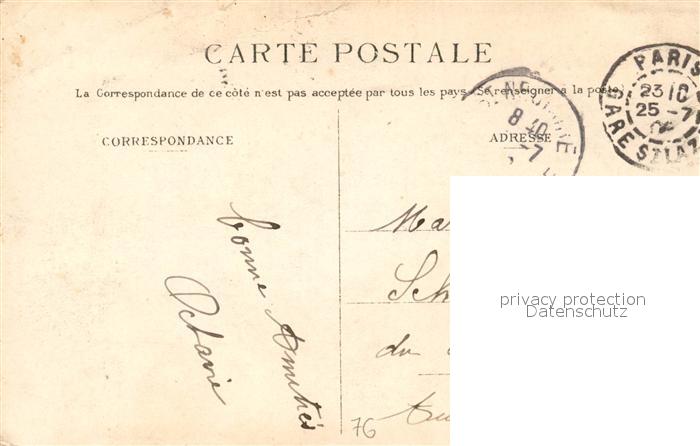 CARTE POSTALE
La Correspondance de ce côté n'est pas acceptée par tous les pays (Se renseigner à la poste)
CORRESPONDANCE
ADRESSE
PARIS
23 10
25 -7
GARE ST LAZ
8 40
-7
bonne Amitiés
Octavie
Ma
Sch
du
76
privacy protection
Datenschutz